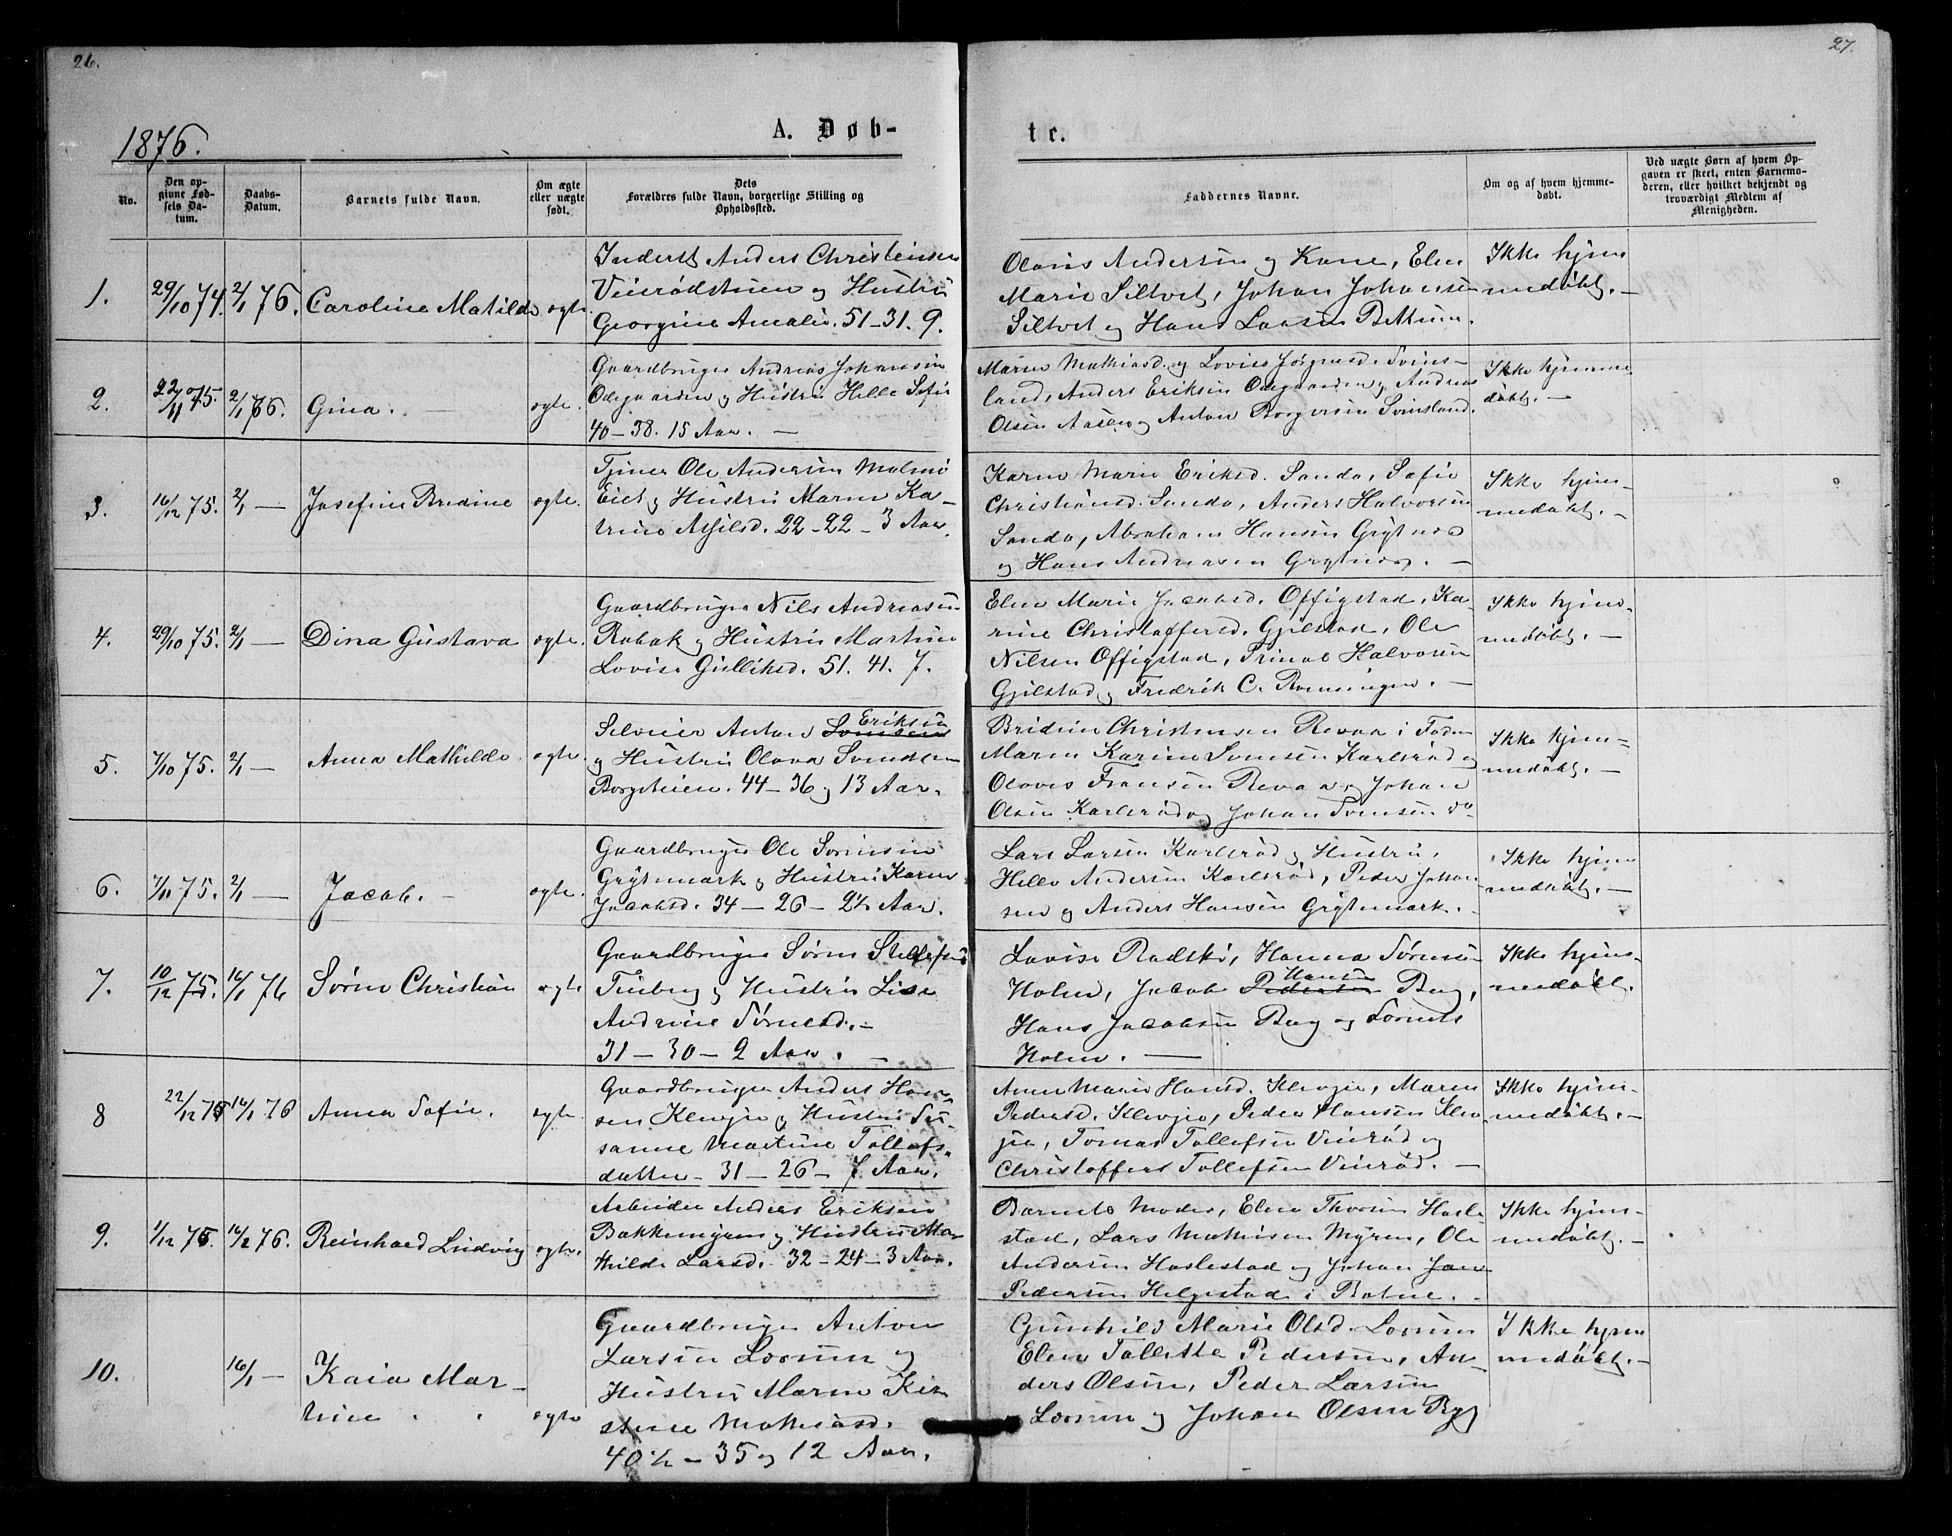 26.
27.
1876.
A. Døb-
te.
No.
Den op-
givne Fød-
sels Da-
tum.
Daabs-
Datum.
Barnets fulde Navn.
Om ægte
eller uægte
født.
Dets
Forældres fulde Navn, borgerlige Stilling og
Opholdssted.
Faddernes Navne.
Om og af hvem hjemme-
døbt.
Ved uægte Børn af hvem Op-
gaven er skeet, enten Barnemo-
deren, eller hvilket bekjendt og
troværdigt Medlem af
Menigheden.
1.
29/10 74.
2/1 76.
Caroline Matilde
ægte.
Inderst Anders Christensen
og Hustru
Georgine Amalie. 51-31. 9.
Olavis Andersen og Kone, Elen
Marie Siltvet, Johan Johansen
Siltvet og Hans Larsen Bettum.
Ikke hjem
medøbt. -
2.
22/11 75.
2/1 76.
Gina.
ægte.
Gaardbruger Andreas Johansen
Ødegaarden og Hustru Helle Sofie
40-38. 15 Aar. -
Maren Mathiasd. og Lovise Jørgensd. Svins-
land, Anders Eriksen Ødegaarden og Andreas
Olsen Aasen og Anton Borgersen Svinsland.
Ikke hjemme
døbt. -
3.
16/12 75.
2/1 -
Josefine Bredine
ægte.
Tjener Ole Andersen Malmø
Eiet og Hustru Maren Ka-
trine Axelsd. 22-22-3 Aar.
Karen Marie Eriksd. Sando, Sofie
Christiansd. Sando, Anders Halvorsen
Sando, Abraham Hansen Grytnes
og Hans Andreasen Grytnes. -
Ikke hjem-
medøbt. -
4.
29/10 75.
2/1 -
Dina Gustava
ægte.
Gaardbruger Nils Andreasen
Rabak og Hustru Martine
Lovise Gulliksd. 51. 41. 7.
Elen Marie Jacobsd. Offigstad, Ka-
rine Christoffersd. Gjelstad, Ole
Nilsen Offigstad, Halvorsen
Gjelstad og Fredrik C. Rønningen. -
Ikke hjem-
medøbt. -
5.
7/10 75.
2/1 -
Anna Mathilde.
ægte.
Selveier Anton Eriksen
og Hustru Olava Svendsen
Borgsteien. 44-36 og 13 Aar.
Bredine Christensen Revaa i
Maren Karine Svensen Karlsrød og
Olaves Fransen Revaa og Johan
Olsen Karlsrød og Johan Svensen do
Ikke hjem-
medøbt. -
6.
7/11 75.
2/1 -
Jacob. -
ægte.
Gaardbruger Ole Sørensen
Grytnmark og Hustru Karen
Jacobsd. 34-26-2½ Aar.
Lars Larsen Karlsrød og Hustru,
Helle Andersen Karlsrød, Peder Johan
sen og Anders Hansen Grytnmark. -
Ikke hjem
medøbt. -
7.
10/12 75.
16/1 76
Søren Christian
ægte
Gaardbruger Søren
og Hustru Lise
Andrine Sørensd. -
31-30-2 Aar. -
Lovise Radskø, Hanna Sørensen
Holm, Jacob Hansen Berg,
Hans Jacobsen Berg og
Holm. -
Ikke hjem-
medøbt.
8
22/12 75
16/1 76
Anna Sofie.
ægte.
Gaardbruger Anders Han-
sen Klevjer og Hustru Su-
sanne Martine Tollefs-
datter - 31-26-7 Aar.
Anne Marie Hansd. Klevjer, Maren
Pedersd. Klevjer, Peder Hansen Klev
jer, Tomas Tollefsen Vinrød og
Christoffers Tollefsen Vinrød. -
Ikke hjem-
medøbt. -
9.
1/12 75.
16/2 76.
Reinhard Ludvig
ægte.
Arbeider Anders Eriksen
Bakkemyren og Hustru Ma-
thilde Larsd. 32-24-3 Aar.
Barnets Moder, Elen Thorsen Hasle
stad, Lars Mathisen Myren, Ole
Andersen Haslestad og Johan Jan
Pedersen Helgestad i Botne. -
Ikke hjem-
medøbt. -
10.
16/1 -
Kaia Mar-
tine
ægte
Gaardbruger Anton
Larsen Løsnes og
Hustru Maren Kir
stine Mathiasd.
40½ - 35 og 12 Aar.
Gunhild Marie Olsd. Løsnes
Elen Tollette Pedersen, An-
ders Olsen, Peder Larsen
Løsnes og Johan Olsen Ryg
Ikke hjem
medøbt. -